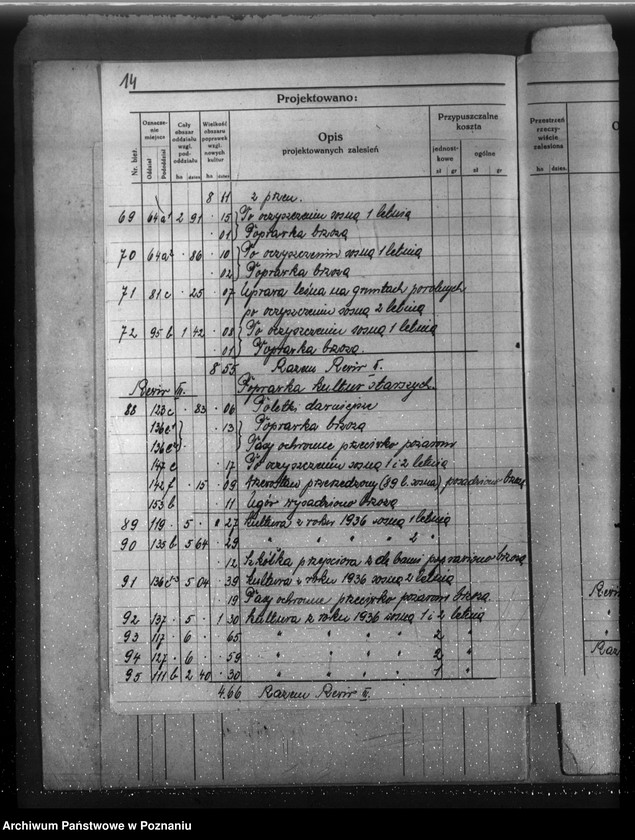 14
Projektowano:
Nr. bież.
Oznacze-
nie
miejsca
Oddział
Pododdział
Cały
obszar
oddziału
wzgl.
pod-
oddziału
ha dzies.
Wielkość
obszaru
poprawek
wzgl.
nowych
kultur
ha dzies.
Opis
projektowanych zalesień
Przypuszczalne
koszta
jednost-
kowe
ogólne
zł gr zł gr
8 11 z przen.
69 64a¹ 2 91 · 15 Po oczyszczeniu sosną 1 letnią
· 01 Poprawka brzozą
70 64a² · 86 · 10 Po oczyszczeniu sosną 1 letnią
· 02 Poprawka brzozą
71 81c · 25 · 07 Uprawa leśna na gruntach porolnych
po oczyszczeniu sosną 2 letnią
72 95 b 1 42 · 08 Po oczyszczeniu sosną 1 letnią
01 Poprawka brzozą
8 55 Razem Rewir I.
Rewir III. Poprawka kultur starszych.
88 123c · 83 · 06 Poletki darniejsze
136c¹ · 13 Poprawka brzozą
136c² · Pasy ochronne przeciwko pożarom
147 c · 17 Po oczyszczeniu sosną 1 i 2 letnią
142 f · 15 · 09 przerzedzony (89 l. sosna) posadzono brzozą
153 b · 11 Ugór wysadzono brzozą
89 119 · 5 · 27 Kultura z roku 1936 sosną 1 letnią
90 135 b 5 64 · 29 " " " " 2 "
· 12 Szkółka przejściowa poprawiono brzozą
91 136 5 04 · 39 Kultura z roku 1936 sosną 2 letnią
19 Pasy ochronne przeciwko pożarom brzozą
92 137 · 5 · 1 30 Kultura z roku 1936 sosną 1 i 2 letnią
93 117 · 6 · 65 " " " " 2 "
94 127 · 6 · 59 " " " " 2 "
95 111 b 2 40 · 30 " " " " 1 "
4.66 Razem Rewir III.
Przestrzeń
rzeczy-
wiście
zalesiona
ha dzies.
Archiwum Państwowe w Poznaniu